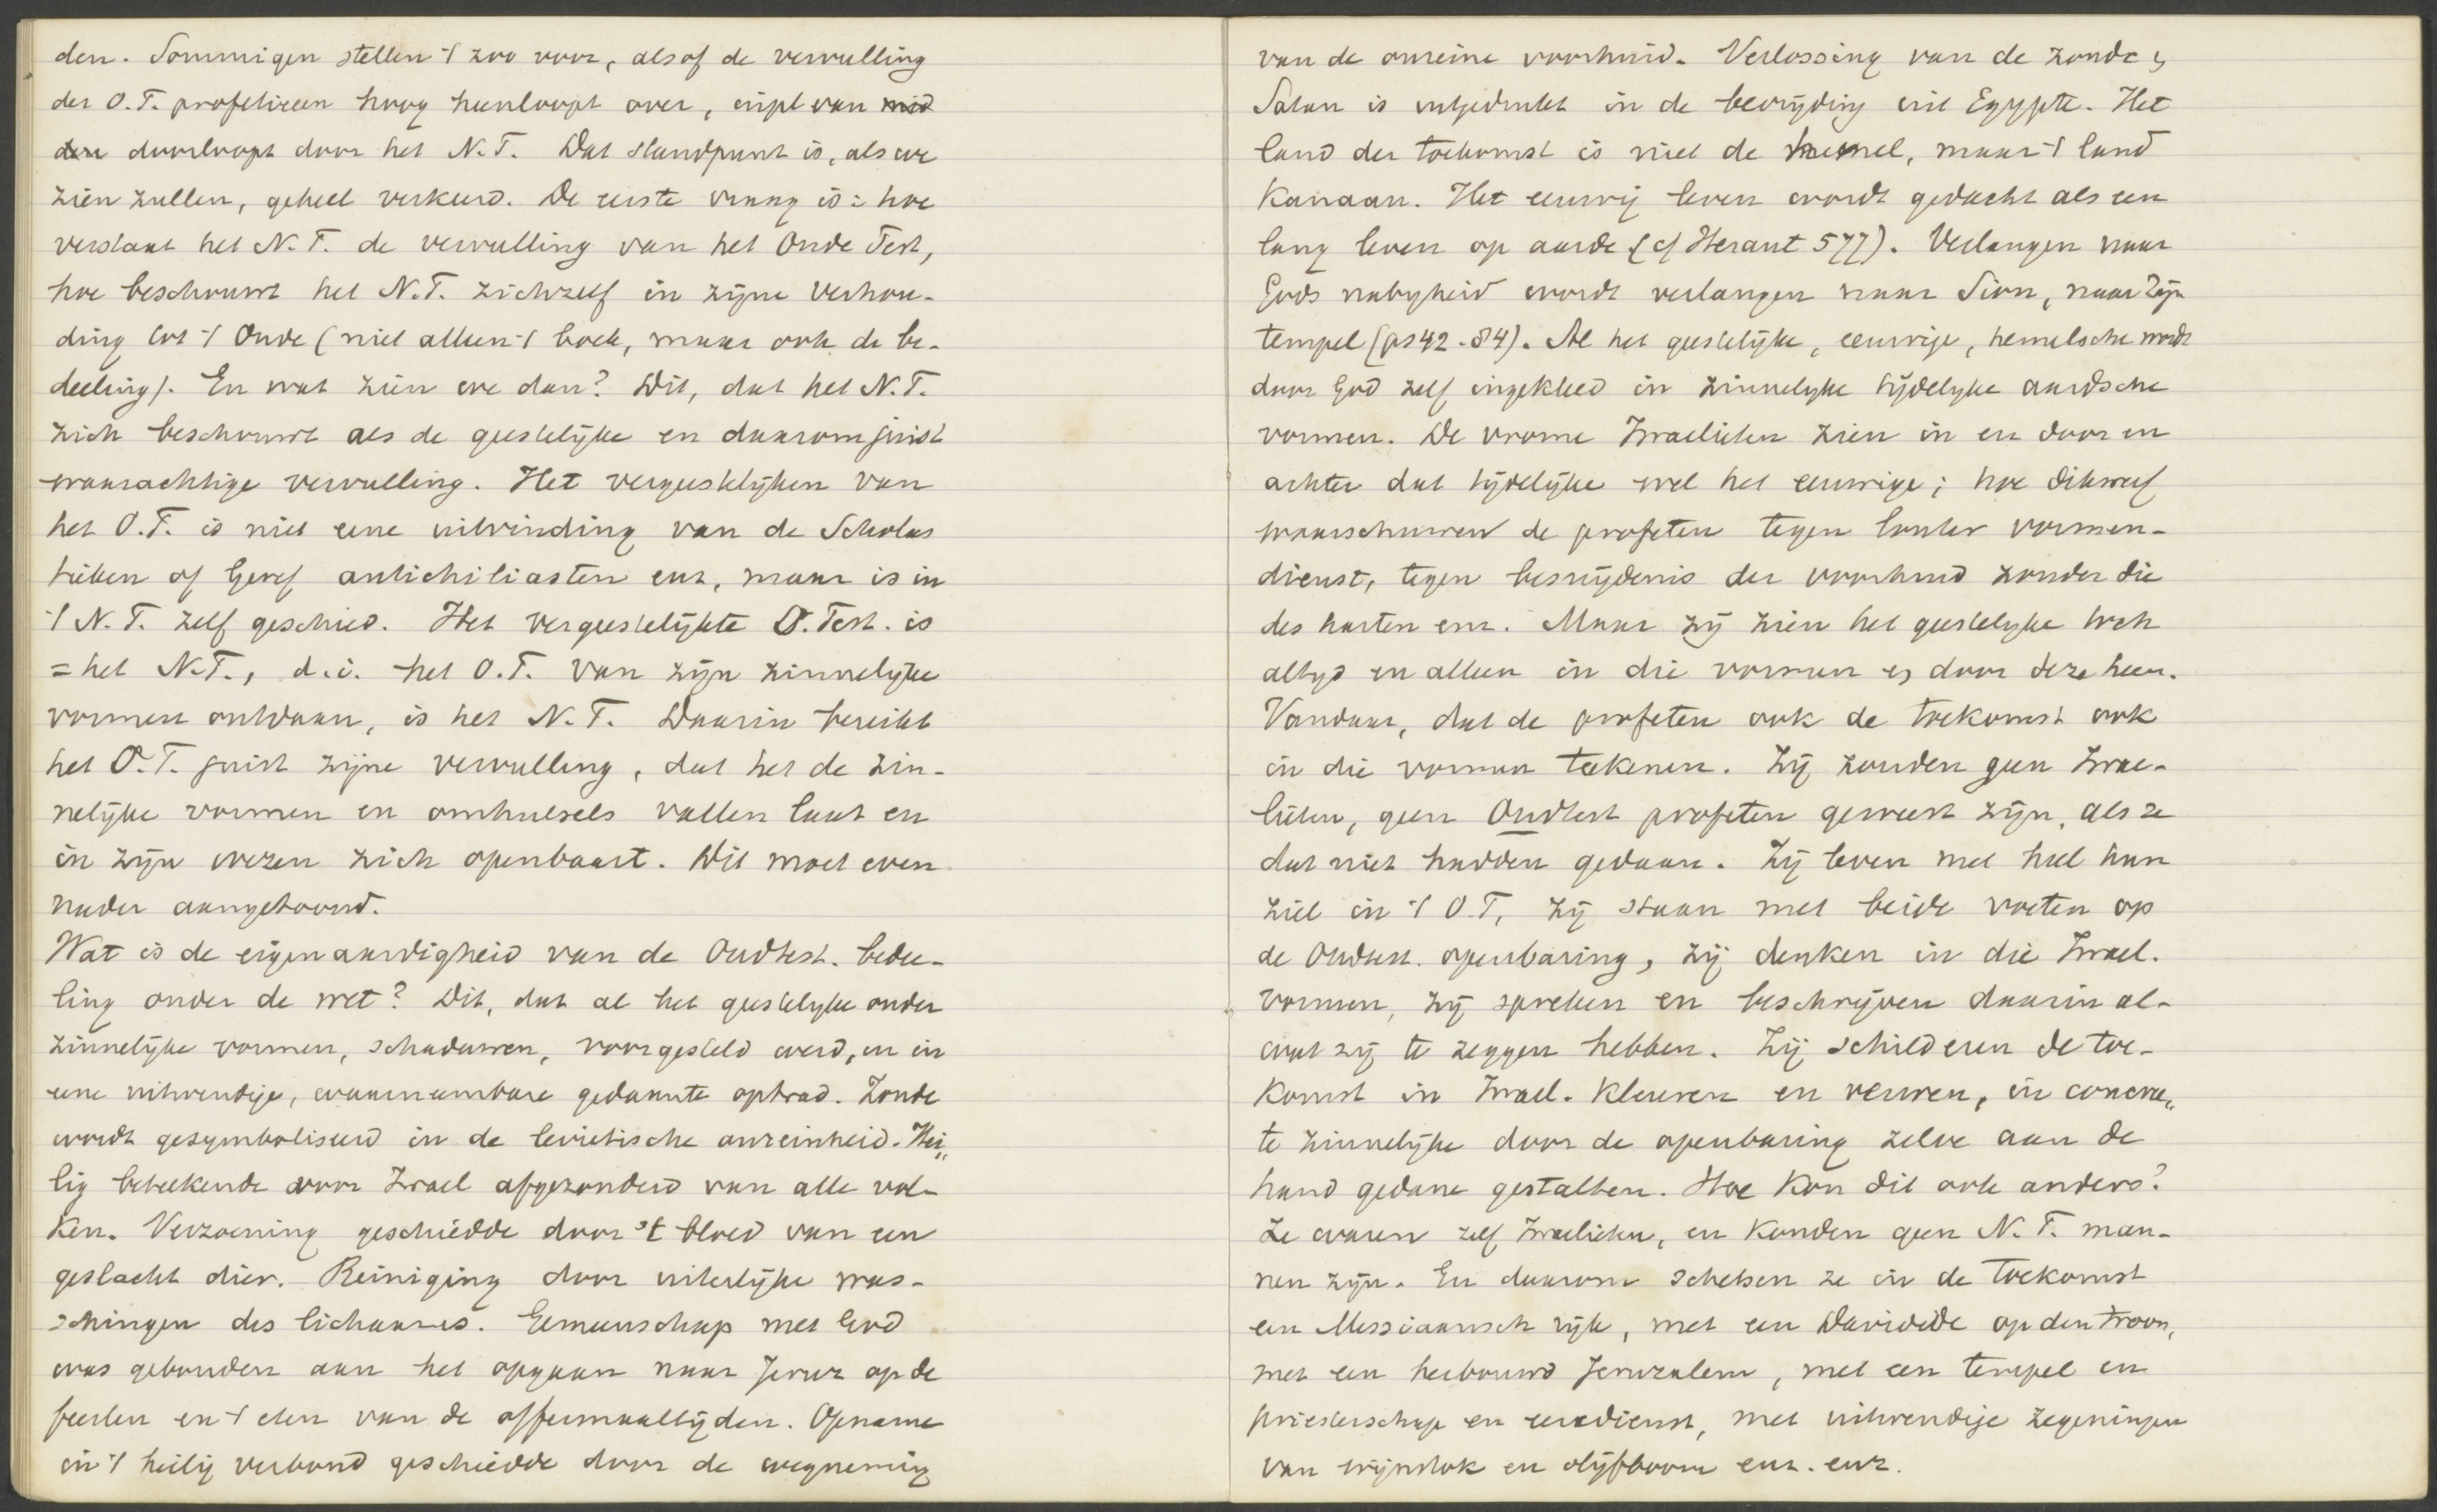 den. Sommigen stellen 't zoo voor, alsof de vervulling
der O.T. profetieen hoog heenloopt over, en pl van mid
den doorloopt door het N.T. Dat standpunt is, als we
zien zullen, geheel verkeerd. De eerste vraag is: hoe
verstaat het N.T. de vervulling van het Oude Test,
hoe beschouwt het N.T. zichzelf in zijne verhou-
ding tot 't Oude (niet alleen 't boek, maar ook de be-
deeling). En wat zien we dan? Dit, dat het N.T.
zich beschouwt als de geestelijke en daarom juist
waarachtige vervulling. Het vergeestelijken van
het O.T. is niet eene uitvinding van de Scholas
tieken of Geref antichiliasten enz, maar is in
't N.T. zelf geschied. Het vergeestelijkte O.Test. is
= het N.T., d.i. het O.T. van zijn zinnelijke
vormen ontdaan, is het N.T. Daarin bereikt
het O.T. juist zijne vervulling, dat het de zin-
nelijke vormen en omhulsels vallen laat en
in zijn wezen zich openbaart. Dit moet even
nader aangetoond.
Wat is de eigenaardigheid van de Oudtest. bedee-
ling onder de wet? Dit, dat al het geestelyke onder
zinnelijke vormen, schaduwen, voorgesteld werd, en in
eene uitwendige, waarneembare gedaante optrad. Zonde
wordt gesymboliseerd in de levietische onreinheid. Hei„
lig beteekende voor Israel afgezonderd van alle vol-
ken. Verzoening geschiedde door 't bloed van een
geslacht dier. Reiniging door uiterlijke was-
schingen des lichaams. Gemeenschap met God
was gebonden aan het opgaan naar Jeruz op de
feesten en 't eten van de offermaaltijden. Opname
in 't heilig verbond geschiedde door de wegneming
van de onreine voorhuid. Verlossing van de zonde &
Satan is uitgedrukt in de bevrijding uit Egypte. Het
land der toekomst is niet de hemel, maar 't land
Kanaan. Het eeuwig leven wordt gedacht als een
lang leven op aarde (cf Heraut 577). Verlangen naar
Gods nabyheid wordt verlangen naar Sion, naar Zijn
tempel (ps 42. 84). Al het geestelijke, eeuwige, hemelsche wordt
door God zelf ingekleed in zinnelyke tijdelyke aardsche
vormen. De vrome Israelieten zien in en door en
achter dat tijdelijke wel het eeuwige; hoe dikwerf
waarschuwen de profeten tegen louter vormen-
dienst, tegen besnijdenis der voorhuid zonder die
des harten enz. Maar zij zien het geestelyke toch
altyd en alleen in die vormen & door deze heen.
Vandaar, dat de profeten ook de toekomst ook
in die vormen teekenen. Zij zouden geen Israe-
lieten, geen Oudtest profeten geweest zijn, als ze
dat niet hadden gedaan. Zij leven met heel hun
ziel in 't O.T, zij staan met beide voeten op
de Oudtest. openbaring, zij denken in die Israel.
vormen, zij spreken en beschrijven daarin al-
wat zij te zeggen hebben. Zij schilderen de toe-
komst in Israel. kleuren en verwen, in concre„
te zinnelijke door de openbaring zelve aan de
hand gedane gestalten. Hoe kon dit ook anders?
Ze waren zelf Israelieten, en konden geen N.T. man-
nen zijn. En daarom schetsen ze in de toekomst
een Messiaansch rijk, met een Davidide op den troon,
met een herbouwd Jeruzalem, met een tempel en
priesterschap en eeredienst, met uitwendige zegeningen
van wijnstok en olijfboom enz. enz.